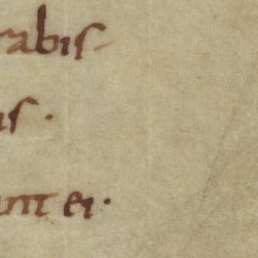 rabis
is.
unt ei.